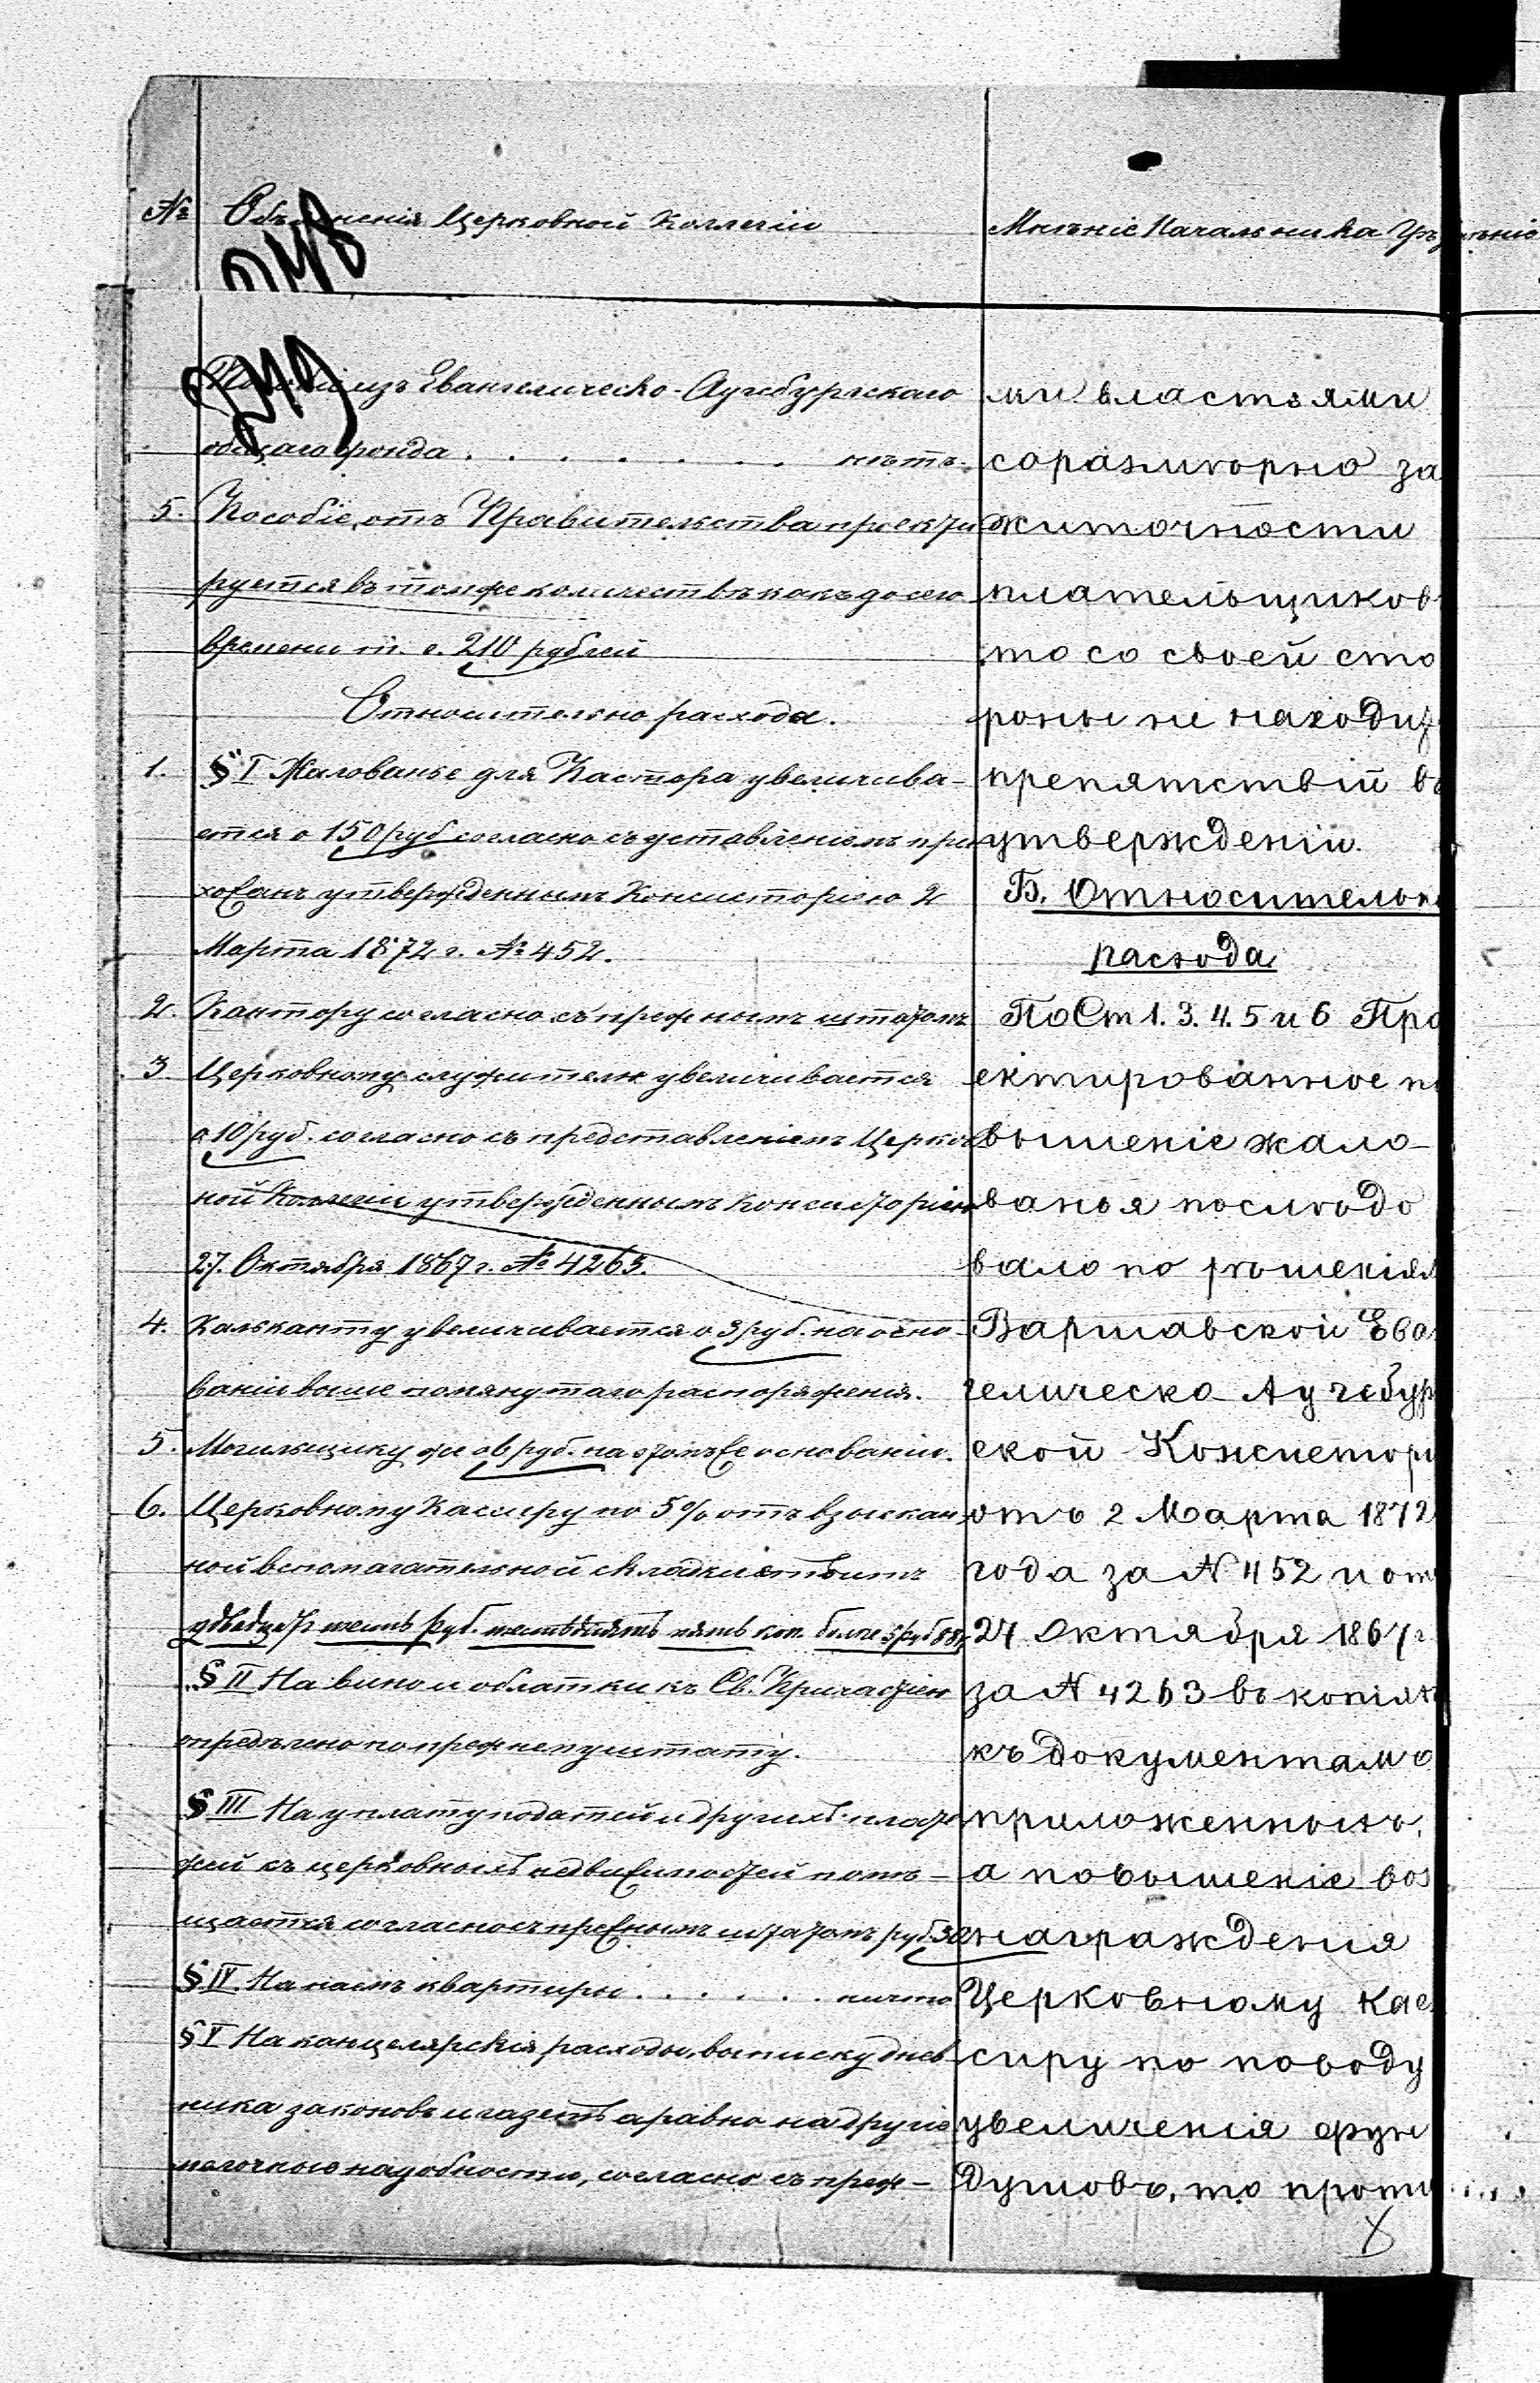 №
Объясненія Церковной Коллегіи
Мнѣніе Начальника Уѣз
248
249
изъ Евангелическо-Аугсбургскаго
общаго фонда . . . . . . . нѣтъ.
5. Пособіе отъ Правительства проекти
руется въ томже количествѣ какъ до сего
времени т. е. 210 рублей
Относительно расхода.
1. § I Жалованье для Пастора увеличива-
ется о 150 руб согласно съ уставленіемъ при
хожанъ утвержденнымъ Консисторіею 2
Марта 1872 г. № 452.
2. Кантору согласно съ прежнимъ штатомъ
3. Церковному служителю увеличивается
о 10 руб. согласно съ представленіемъ Церков
ной Коллегіи утвержденнымъ Консисторіею
27. Октября 1867 г. № 4263.
4. Кальканту увеличивается о 3 руб. на осно-
ваніи выше помянутаго распоряженія.
5. Могильщику же о 6 руб. на томже основаніи.
6. Церковному Кассиру по 5% отъ взыскан-
ной вспомагательной складки
руб. пять коп. более
§ II На вино и облатки къ Св. Причастію
опредѣлено по прежнему штату.
§ III На уплату податей и другихъ плате
жей къ церковныхъ недвижимостей помѣ-
щается согласно съ прежнимъ штатомъ руб. 30
§ IV. На наемъ квартиры . . . . . . ничто
§ V На канцелярскія расходы, выписку днев
ника законовъ и газетъ а равно на другіе
мелочные надобности, согласно съ преж-
ми властями
соразмѣрно за
житочности
плательщиков
то со своей сто
роны не находи
препятствій въ
утвержденіи.
Б. Относительн
расхода
По Ст 1. 3. 4. 5 и 6 Про
ектированное по
вышеніе жало-
ванья послѣдо
вало по рѣшенія
Варшавской Еван
гелическо Аугсбур
ской Консистори
отъ 2 Марта 1872
года за № 452 и от
27 Октября 1867 г
за № 4263 въ копіях
къ документамъ
приложенныхъ,
а повышеніе воз
награжденія
Церковному Кас
сиру по поводу
увеличенія фун
думовъ, то проти